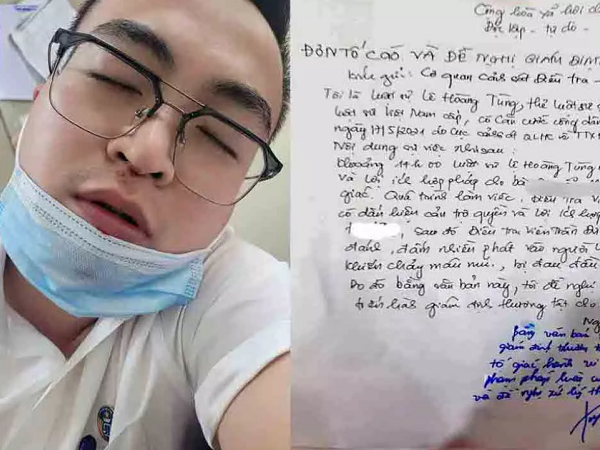 Cộng hòa xã hội
Độc lập - tự do -
ĐƠN TỐ CÁO VÀ ĐỀ NGHỊ GIÁM ĐỊNH
Kính gửi: Cơ quan cảnh sát Điều tra -
Tôi là luật sư Lê Hoàng Tùng, thẻ luật sư
luật sư Việt Nam cấp, có Căn cước công dân
ngày 17/5/2021 do cục cảnh sát QLHC về TTXH
Nội dung sự việc như sau:
khoảng 11h00 luật sư Lê Hoàng Tùng
và lợi ích hợp pháp cho bà
giác. Quá trình làm việc, Điều tra
có dấu hiệu cản trở quyền và lợi ích
sau đó Điều tra viên Trần
đánh, đấm nhiều phát vào người
khiến chảy máu mũi, bị đau đầu
Do đó bằng văn bản này, tôi đề nghị
giám định thương tật cho
Bằng văn bản
giám định thương
tố giác hành vi
phạm pháp luật
và đề nghị xử lý